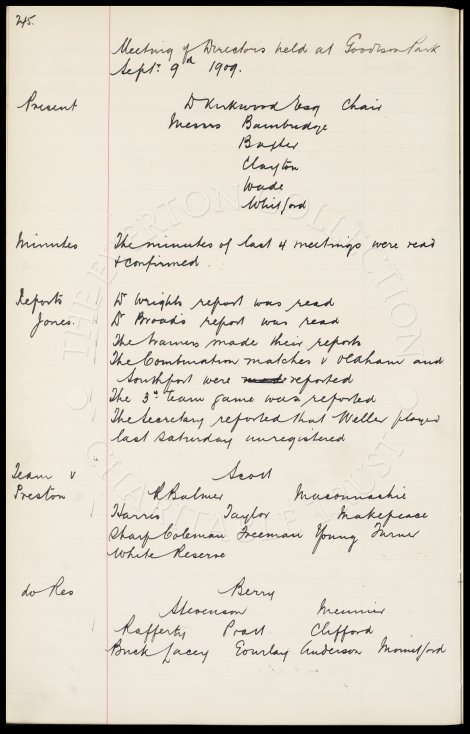 245.
Meeting of Directors held at Goodison Park
Septr 9th 1909.
Present D Kirkwood Esq Chair
Messrs Bainbridge
Baxter
Clayton
Wade
Whitford
Minutes The minutes of last 4 meetings were read
& confirmed.
Reports Dr Wrights report was read
Jones. Dr Broad's report was read
The trainers made their reports
The Combination matches v Oldham and
Southport were reported
The 3rd team game was reported
The Secretary reported that Weller played
last Saturday unregistered
Team v Scott
Preston R Balmer Macconnachie
Harris Taylor Makepeace
Sharp Coleman Freeman Young Turner
White Reserve
do Res Berry
Stevenson Meunier
Rafferty Pratt Clifford
Buck Lacey Gourlay Anderson Mountford
THE EVERTON COLLECTION
CHARITABLE TRUST